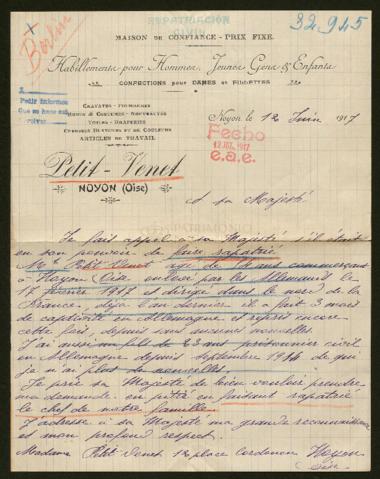 REPATRIACION
CIVIL
32945
Berlin
MAISON DE CONFIANCE - PRIX FIXE
Habillements pour Hommes, Jeunes Gens & Enfants
CONFECTIONS pour DAMES et FILLETTES
CRAVATES
VOILES - DRAPERIES
ARTICLES DE TRAVAIL
Noyon le 12 Juin 1917
Fecho
12 JUL. 1917
e.a.e.
Petit-Venet
NOYON (Oise)
A sa Majesté
Je fais appel à sa Majesté s'il était
en son pouvoir de faire rapatrié
Mr Petit Venet agé de ans commerçant
à Noyon Oise enlevé par les Allemands le
17 février 1917 et dirigé dans le nord de la
France. déjà l'an dernier il a fait 3 mois
de captivité en Allemagne et repris encore
cette fois, depuis sans aucunes nouvelles.
J'ai aussi un fils de 23 ans prisonnier civil
en Allemagne depuis septembre 1914 de qui
je n'ai plus de nouvelles.
Je prie sa Majesté de bien vouloir prendre
ma demande en pitié en faisant rapatrié
le chef de notre famille.
J'adresse à sa Majesté ma grande reconnaissance
et mon profond respect.
Madame Petit Venet 12 place Cordouen Noyon
Oise